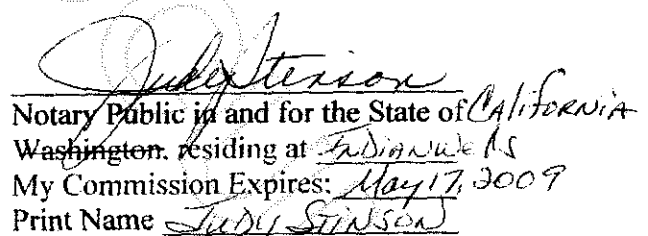 Judy Stinson
Notary Public in and for the State of CALiFORNiA
Washington. residing at INDIAN WEllS
My Commission Expires: May 17, 2009
Print Name JUDY STINSON